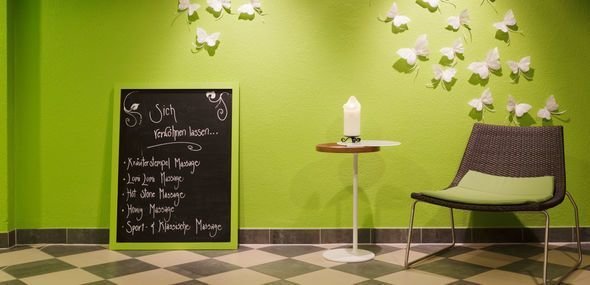 Sich
verwöhnen lassen...
• Kräuterstempel Massage
• Lomi Lomi Massage
• Hot Stone Massage
• Honig Massage
• Sport- & Klassische Massage